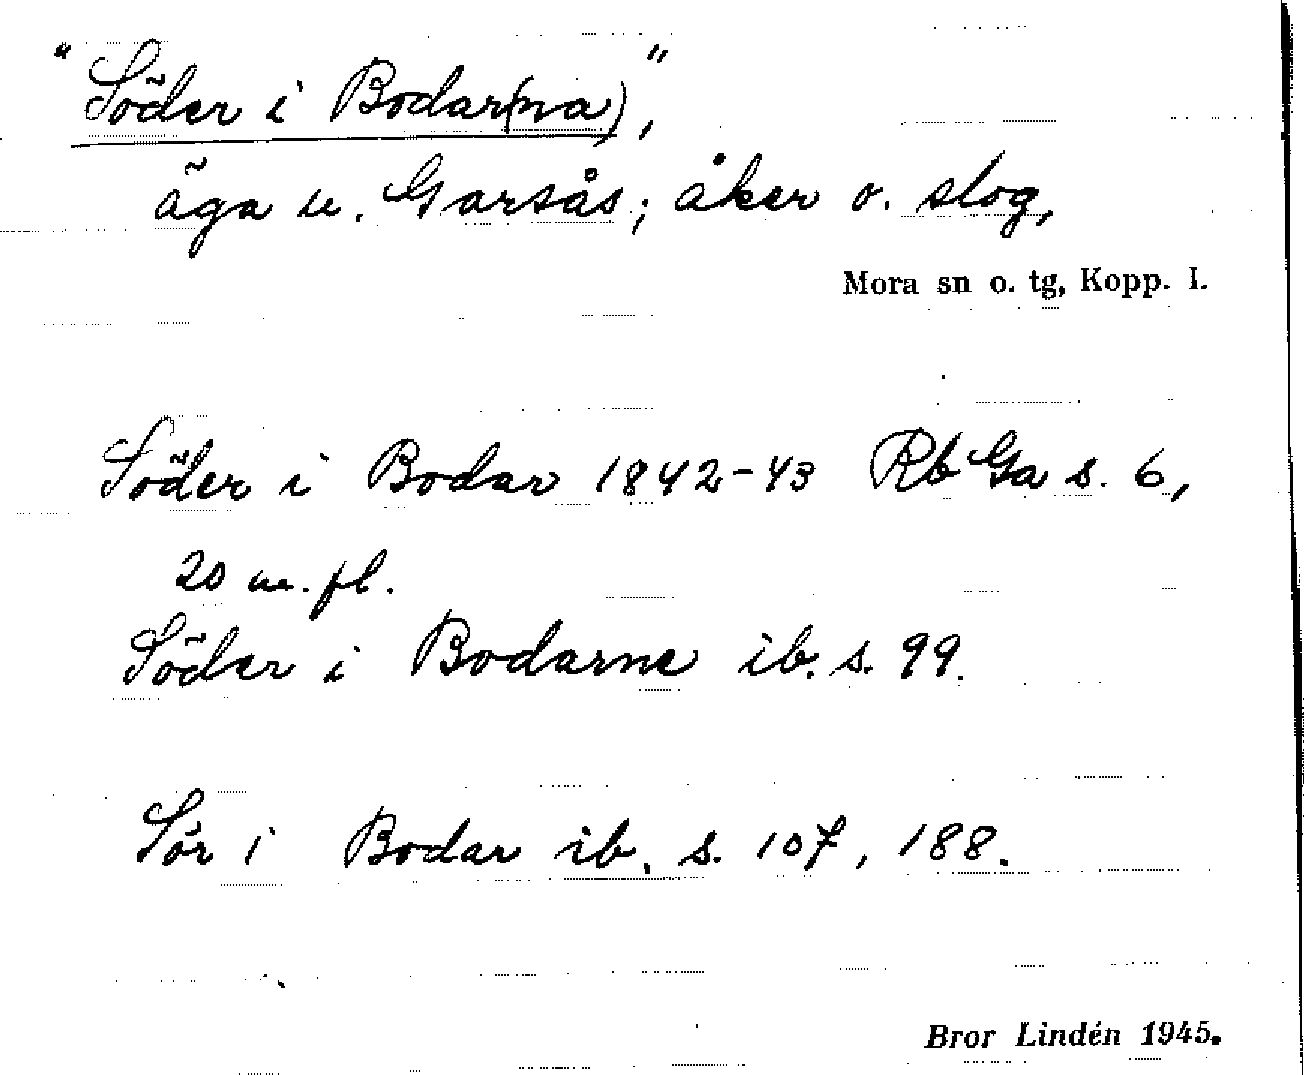 "Söder i Bodar(na)",
äga u. Garsås; åker o. slog,
Mora sn o. tg, Kopp. l.
Söder i Bodar 1842-43 Rb Ga s. 6,
20 m. fl.
Söder i Bodarne ib. s. 99.
Sör i Bodar ib. s. 107, 188.
Bror Lindén 1945.